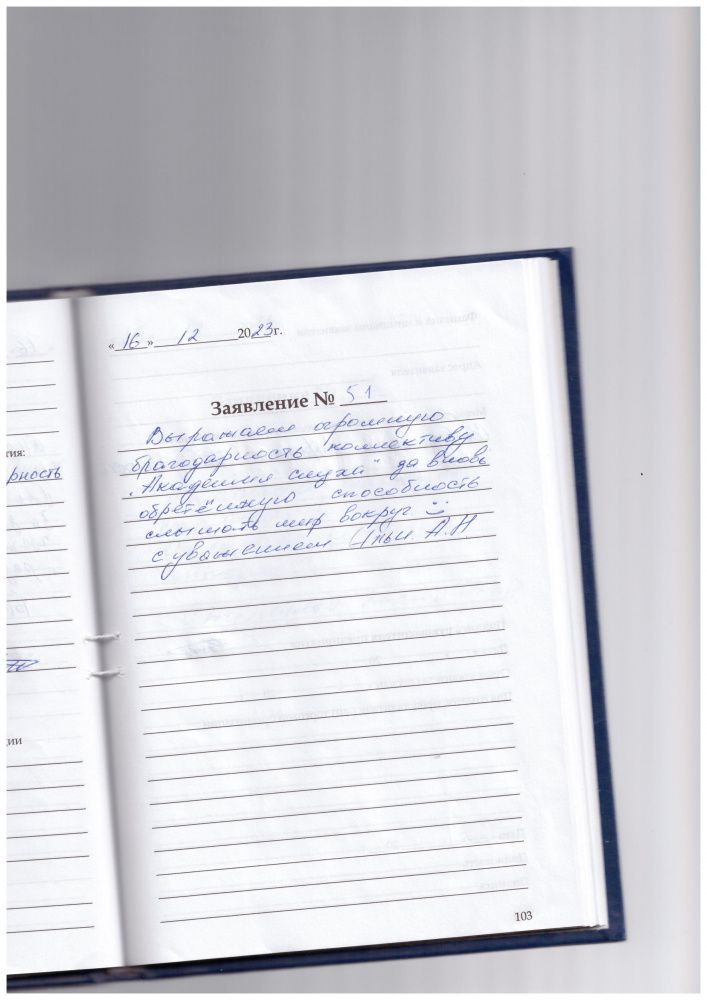 тия:
рность
ии
«16» 12 2023г.
Заявление № 51
Выражаем огромную
благодарность коллективу
„Академия слуха" за вновь
обретённую способность
слышать мир вокруг :)
с уважением А.Н
103